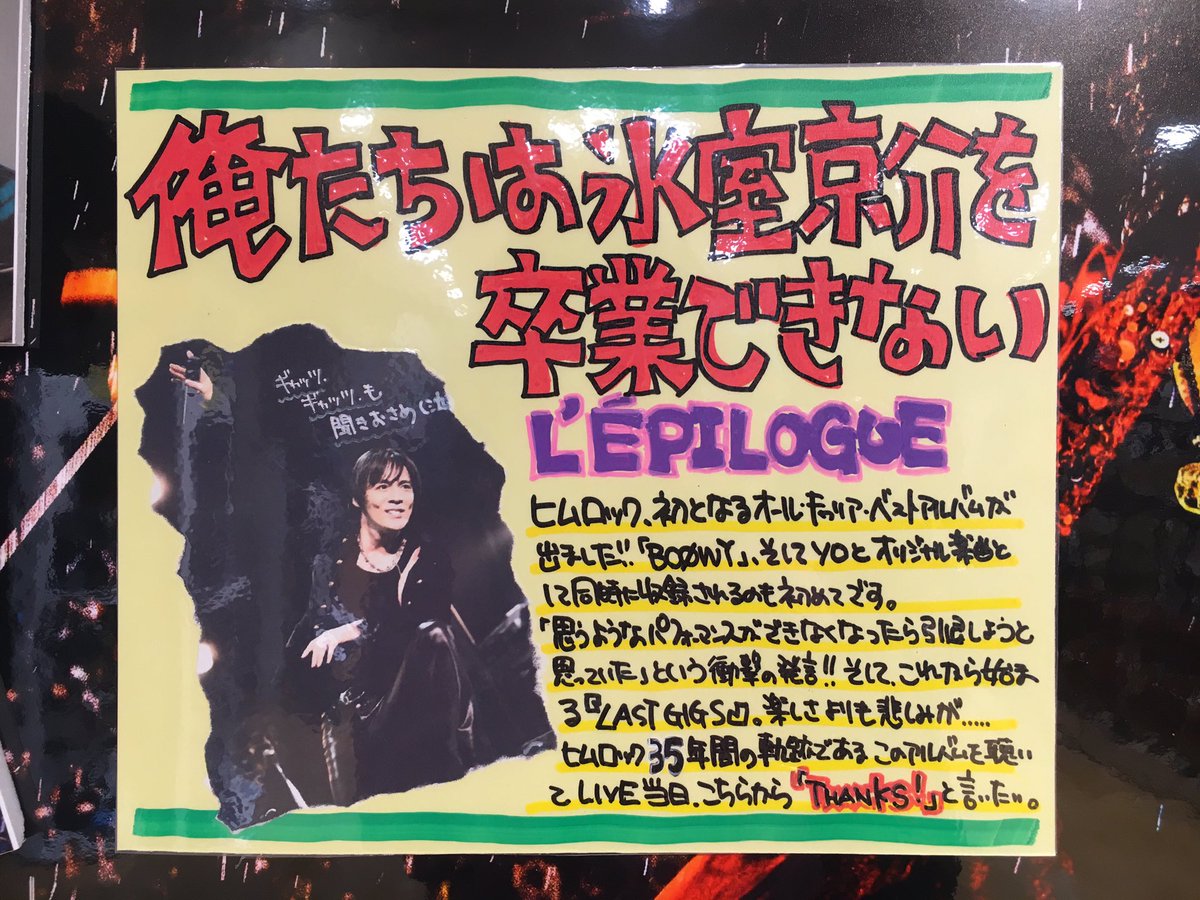 俺たちは氷室京介を
卒業できない
L'ÉPILOGUE
ギャッツ、
ギャッツ、も
聞きおさめに
ヒムロック、初となるオール・キャリア・ベストアルバムが
出ました!!「BOØWY」、そしてYOとオリジナル楽曲と
して同時に収録されるのも初めてです。
「思うようなパフォーマンスができなくなったら引退しようと
思っていた」という衝撃の発言!!そして、これから始ま
る『LAST GIGS』。楽しさよりも悲しみが.....
ヒムロック35年間の軌跡であるこのアルバムを聴い
てLIVE当日、こちらから「THANKS!」と言いたい。